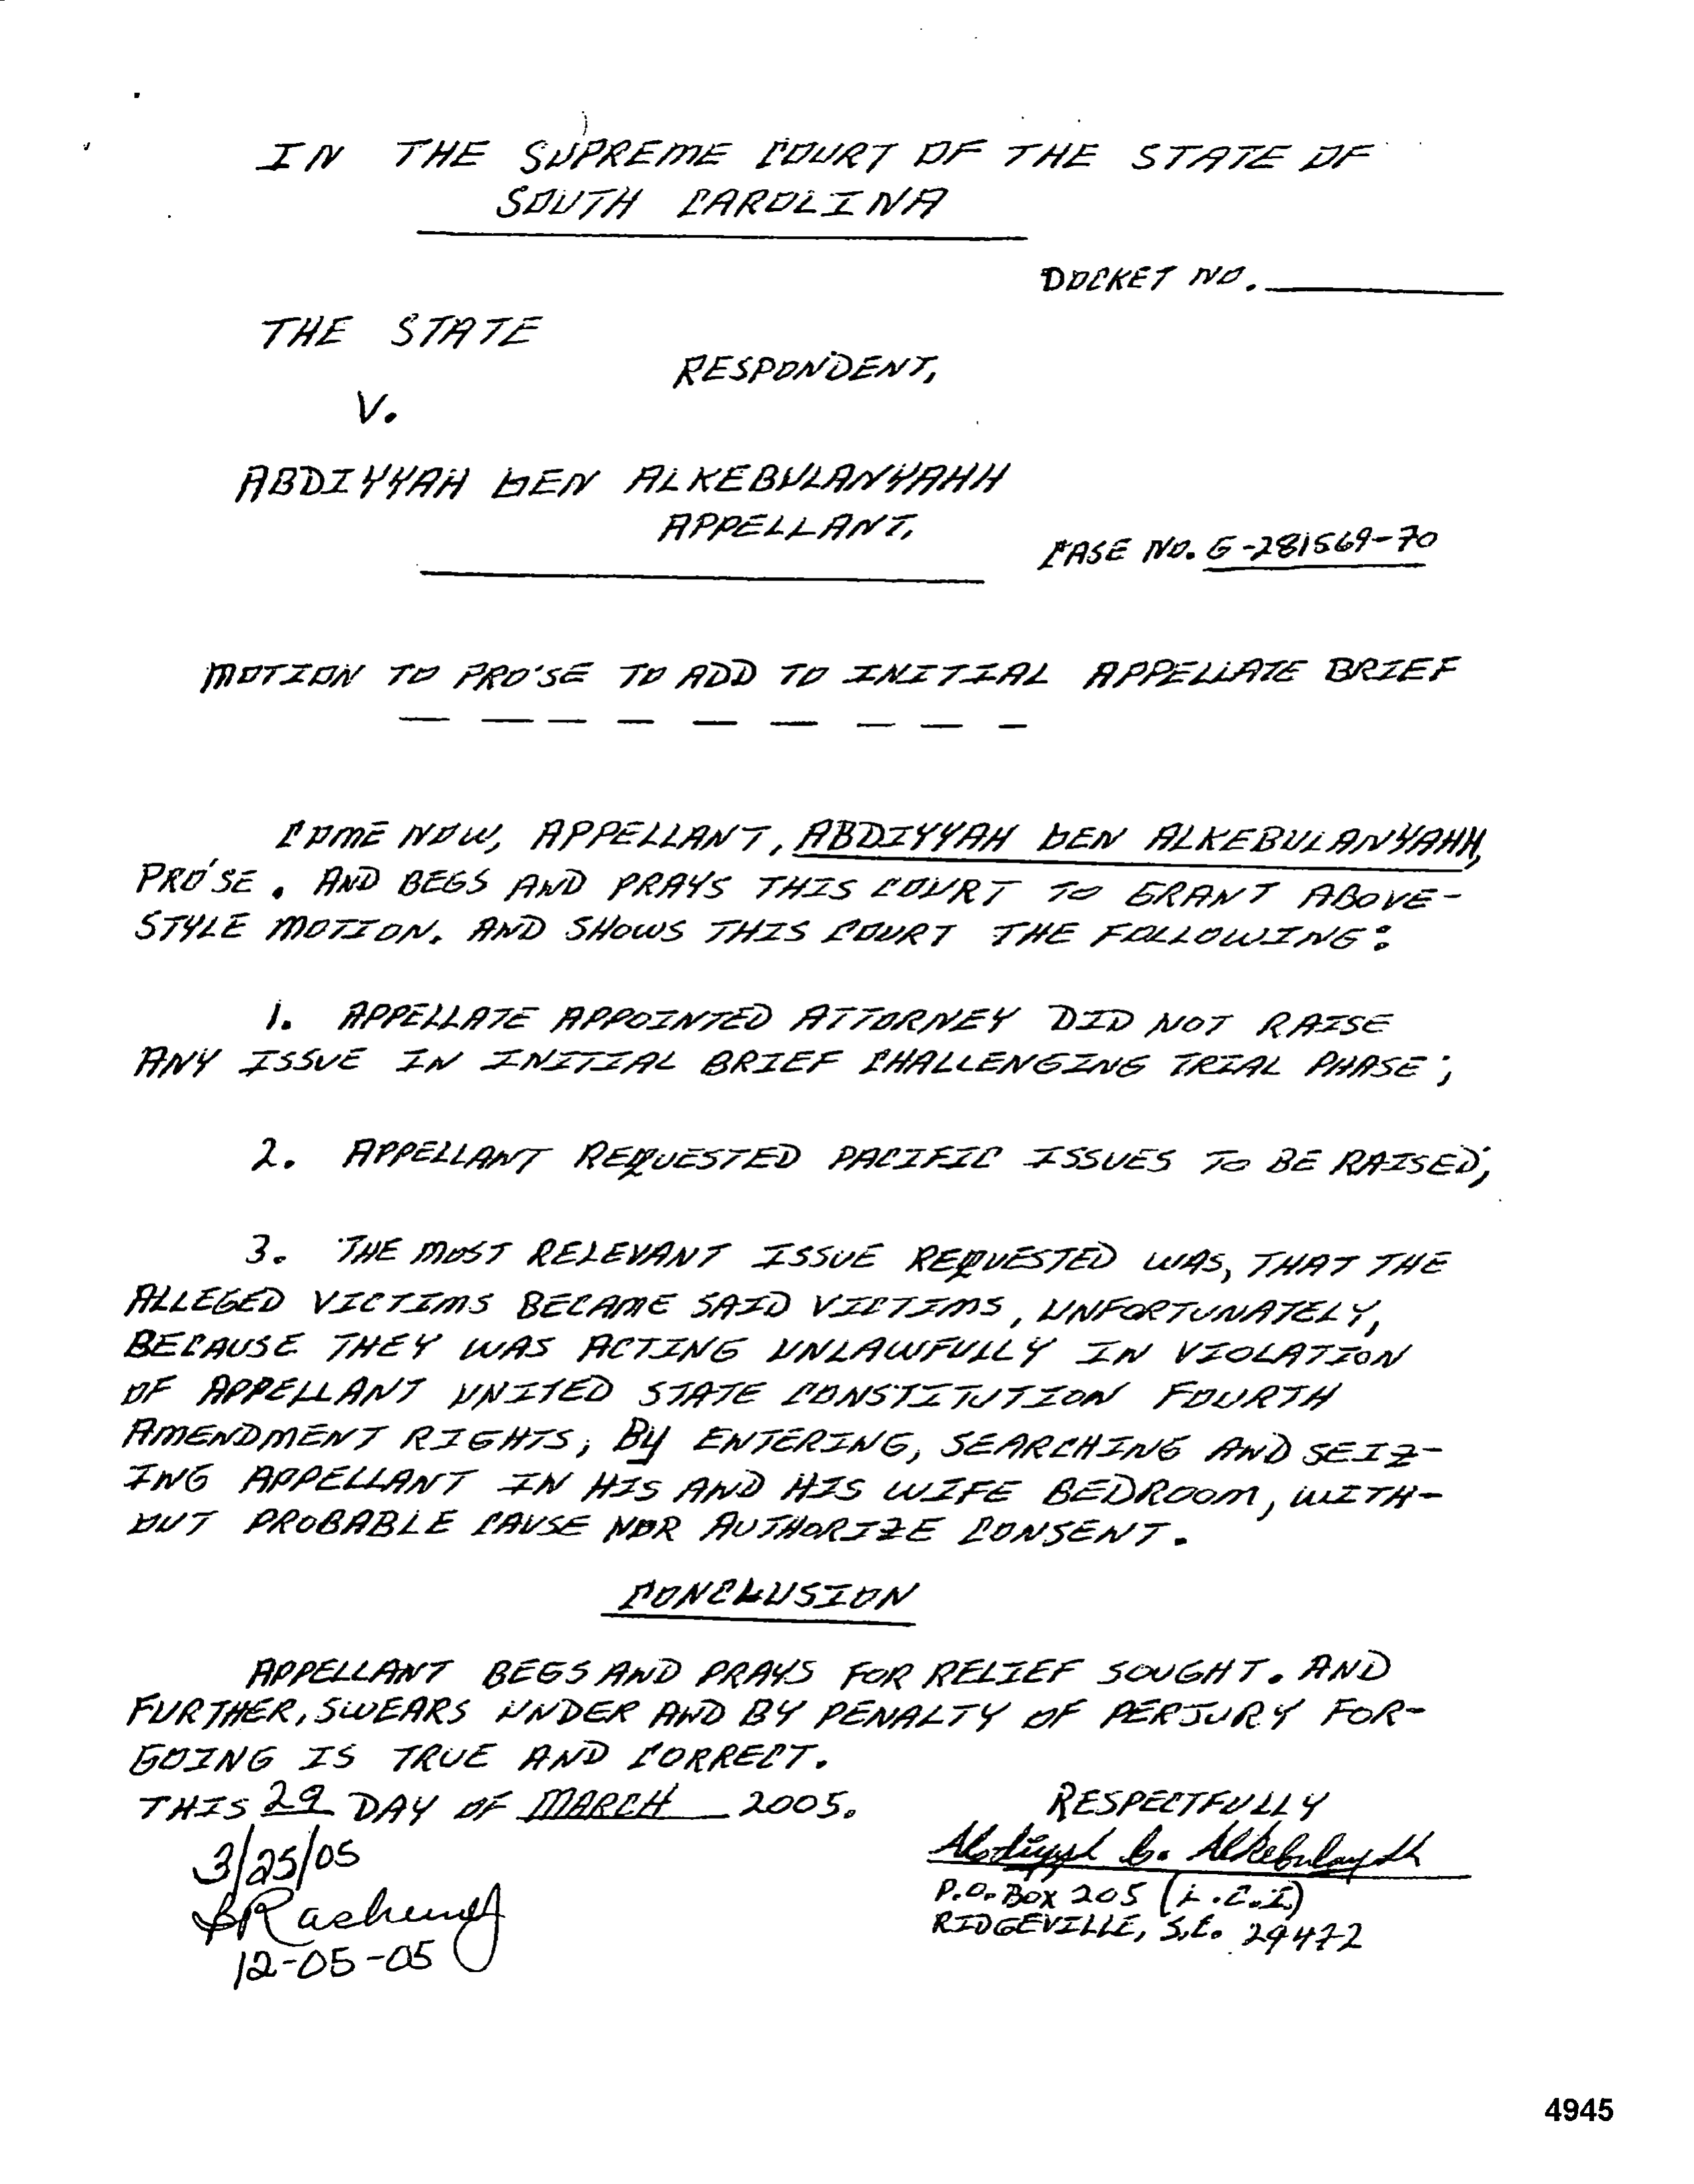 IN THE SUPREME COURT OF THE STATE OF
SOUTH CAROLINA
DOCKET NO.
THE STATE
RESPONDENT,
V.
ABDIYYAH bEN ALKEBULANYAHH
APPELLANT.
CASE NO. G-281569-70
MOTION TO PRO'SE TO ADD TO INITIAL APPELLATE BRIEF
COME NOW, APPELLANT, ABDIYYAH bEN ALKEBULANYAHH,
PRO'SE. AND BEGS AND PRAYS THIS COURT TO GRANT ABOVE-
STYLE MOTION. AND SHOWS THIS COURT THE FOLLOWING:
1. APPELLATE APPOINTED ATTORNEY DID NOT RAISE
ANY ISSUE IN INITIAL BRIEF CHALLENGING TRIAL PHASE;
2. APPELLANT REQUESTED PACIFIC ISSUES TO BE RAISED;
3. THE MOST RELEVANT ISSUE REQUESTED WAS, THAT THE
ALLEGED VICTIMS BECAME SAID VICTIMS, UNFORTUNATELY,
BECAUSE THEY WAS ACTING UNLAWFULLY IN VIOLATION
OF APPELLANT UNITED STATE CONSTITUTION FOURTH
AMENDMENT RIGHTS; By ENTERING, SEARCHING AND SEIZ-
ING APPELLANT IN HIS AND HIS WIFE BEDROOM, WITH-
OUT PROBABLE CAUSE NOR AUTHORIZE CONSENT.
CONCLUSION
APPELLANT BEGS AND PRAYS FOR RELIEF SOUGHT. AND
FURTHER, SWEARS UNDER AND BY PENALTY OF PERJURY FOR-
GOING IS TRUE AND CORRECT.
THIS 29 DAY OF MARCH 2005.
RESPECTFULLY
3/25/05
Abdiyyah b. Alkebulanyahh
P.O. BOX 205 (L.C.I)
RIDGEVILLE, S.C. 29472
12-05-05
4945